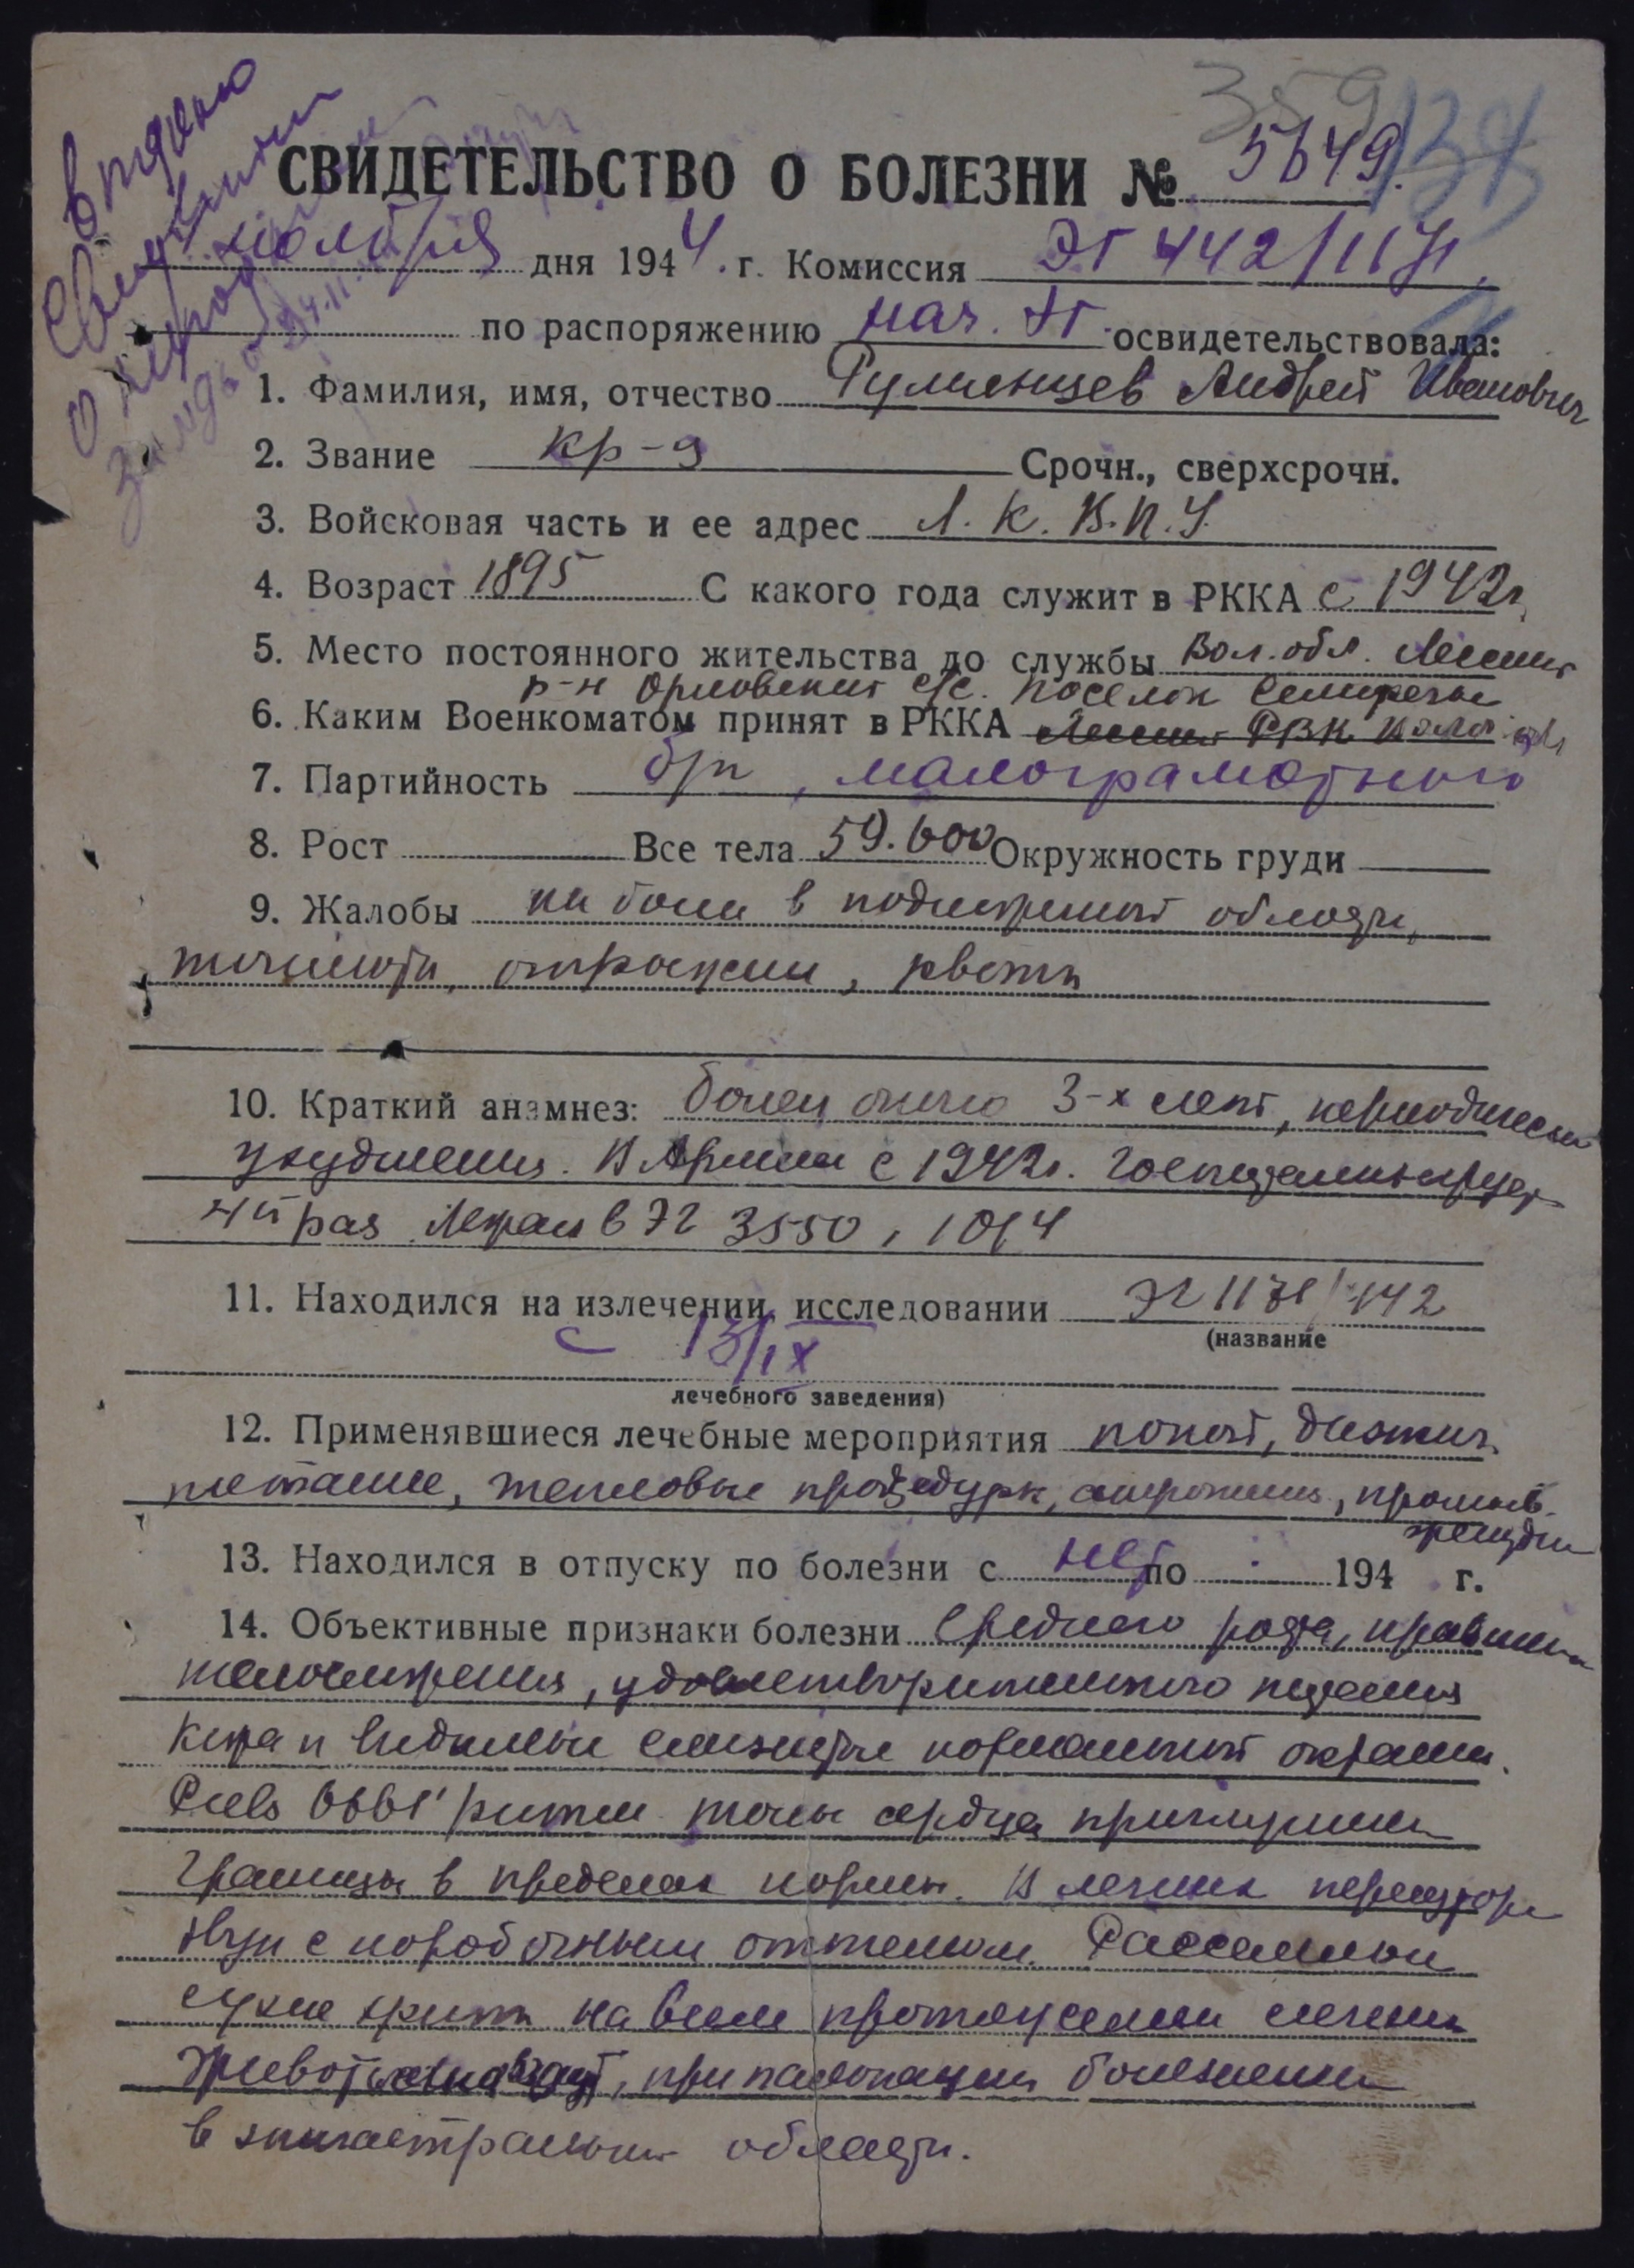 359
134
СВИДЕТЕЛЬСТВО О БОЛЕЗНИ № 5649
ноября дня 1944 г. Комиссия ЭГ 442/1171
по распоряжению нач. ЭГ освидетельствовала:
1. Фамилия, имя, отчество Румянцев Андрей Иванович
2. Звание кр-ц Срочн., сверхсрочн.
3. Войсковая часть и ее адрес Л. К. В. П. У.
4. Возраст 1895 С какого года служит в РККА с 1942 г.
5. Место постоянного жительства до службы Вол. обл.
р-н Орловский с/с. поселок
6. Каким Военкоматом принят в РККА РВК
7. Партийность б/п, малограмотный
8. Рост Все тела 59.600 Окружность груди
9. Жалобы на боли в подложечной области,
тошноту, отрыжки, рвоты
10. Краткий анамнез: болен около 3-х лет, периодически
ухудшения. В Армии с 1942 г. Госпитализирует
4й раз Лежал в ЭГ 3550, 1014
11. Находился на излечении, исследовании ЭГ 1171/442
(название
с 13/IX
лечебного заведения)
12. Применявшиеся лечебные мероприятия покой, диэтич.
питание, тепловые процедуры, атропин, промыв.
желудка
13. Находился в отпуску по болезни с нет по 194 г.
14. Объективные признаки болезни Среднего роста, правильн
телосложения, удовлетворительного питания
Кожа и видимые слизистые нормальной окраски.
Puls 66 61' ритм. тоны сердца приглушены
Границы в пределах нормы. В легких перкуторн
звук с коробочным оттенком. Рассеянные
сухие хрипы на всем протяжении легких
Живот, при пальпации болезненен
в эпигастральной области.